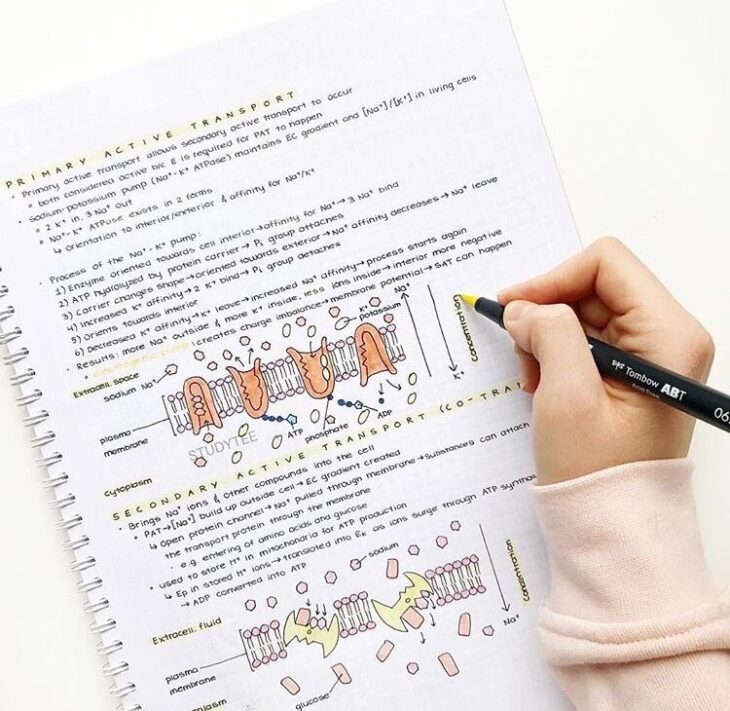 PRIMARY ACTIVE TRANSPORT
• Primary active transport allows secondary active transport to occur
° both considered active b/c E is required for PAT to happen
• Sodium-potassium pump (Na⁺-K⁺ ATPase) maintains EC gradient and [Na⁺]/[K⁺] in living cells
° 2 K⁺ in, 3 Na⁺ out
° Na⁺-K⁺ ATPase exists in 2 forms
↳ orientation to interior/exterior & affinity for Na⁺/K⁺
• Process of the Na⁺-K⁺ pump:
1) Enzyme oriented towards cell interior→affinity for Na⁺→ 3 Na⁺ bind
2) ATP hydrolyzed by protein carrier→ Pᵢ group attaches
3) Carrier changes shape→oriented towards exterior→Na⁺ affinity decreases→Na⁺ leave
4) Increased K⁺ affinity→2 K⁺ bind→Pᵢ group detaches
5) Orients towards interior
6) Decreased K⁺ affinity→K⁺ leave→increased Na⁺ affinity→process starts again
• Results: more Na⁺ outside & more K⁺ inside, less ions inside→interior more negative
° electrogenic pump: creates charge imbalance→membrane potential→SAT can happen
Extracell. space
sodium Na⁺
K⁺
potassium
Na⁺
K⁺
Concentration
plasma
membrane
STUDYTEE
ATP
phosphate
ADP
cytoplasm
SECONDARY ACTIVE TRANSPORT (CO-TRA
• Brings Na⁺ ions & other compounds into the cell
° PAT→[Na⁺] build up outside cell→EC gradient created
↳ Open protein channel→Na⁺ pulled through membrane→substances can attach
the transport protein through the membrane
◦ e.g. entering of amino acids and glucose
° used to store H⁺ in mitochondria for ATP production
↳ Ep in stored H⁺ ions→translated into Eₖ as ions surge through ATP synthas
→ ADP converted into ATP
sodium
Concentration
Na⁺
Extracell. fluid
plasma
membrane
glucose
Tombow ABT